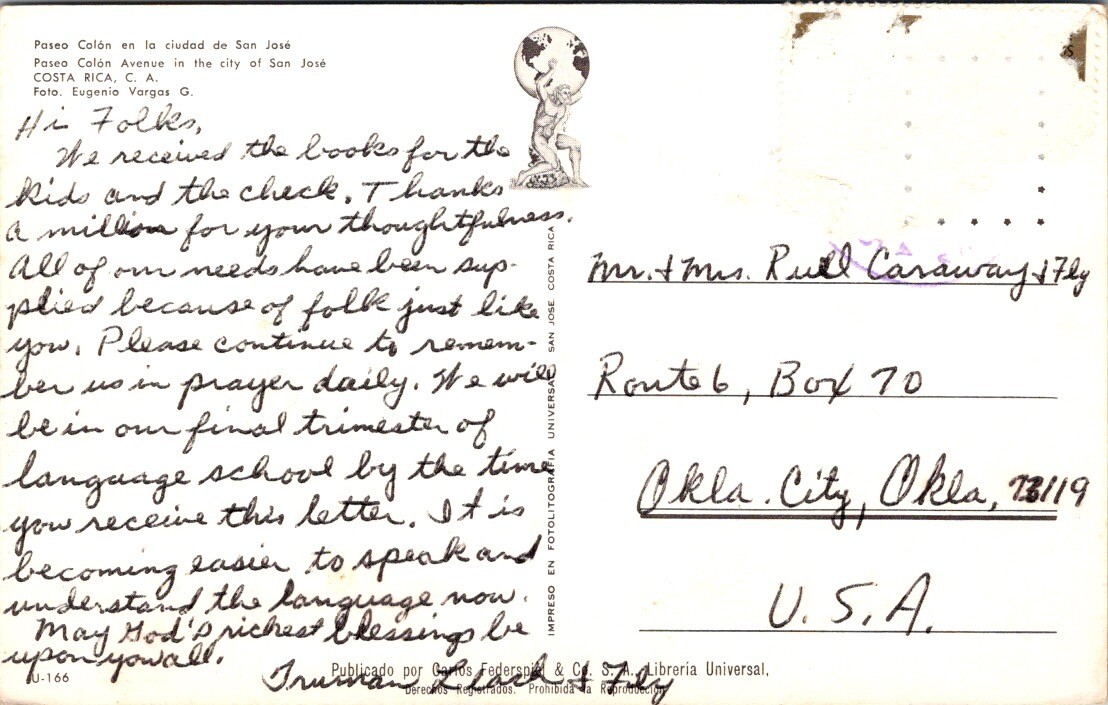 Paseo Colón en la ciudad de San José
Paseo Colón Avenue in the city of San José
COSTA RICA, C. A.
Foto. Eugenio Vargas G.
Hi Folks,
We received the books for the
kids and the check. Thanks
a million for your thoughtfulness.
All of our needs have been sup-
plied because of folk just like
you. Please continue to remem-
ber us in prayer daily. We will
be in our final trimester of
language school by the time
you receive this letter. It is
becoming easier to speak and
understand the language now.
May God's richest blessings be
upon you all.
Truman Leach & Fly
U-166
IMPRESO EN FOTOLITOGRAFIA UNIVERSAL SAN JOSE COSTA RICA
Mr. & Mrs. Rull Caraway & Fly
Route 6, Box 70
Okla. City, Okla. 73119
U. S. A.
Publicado por Carlos Federspiel & Co. S. A. Librería Universal,
Derechos Registrados. Prohibida la Reproducción